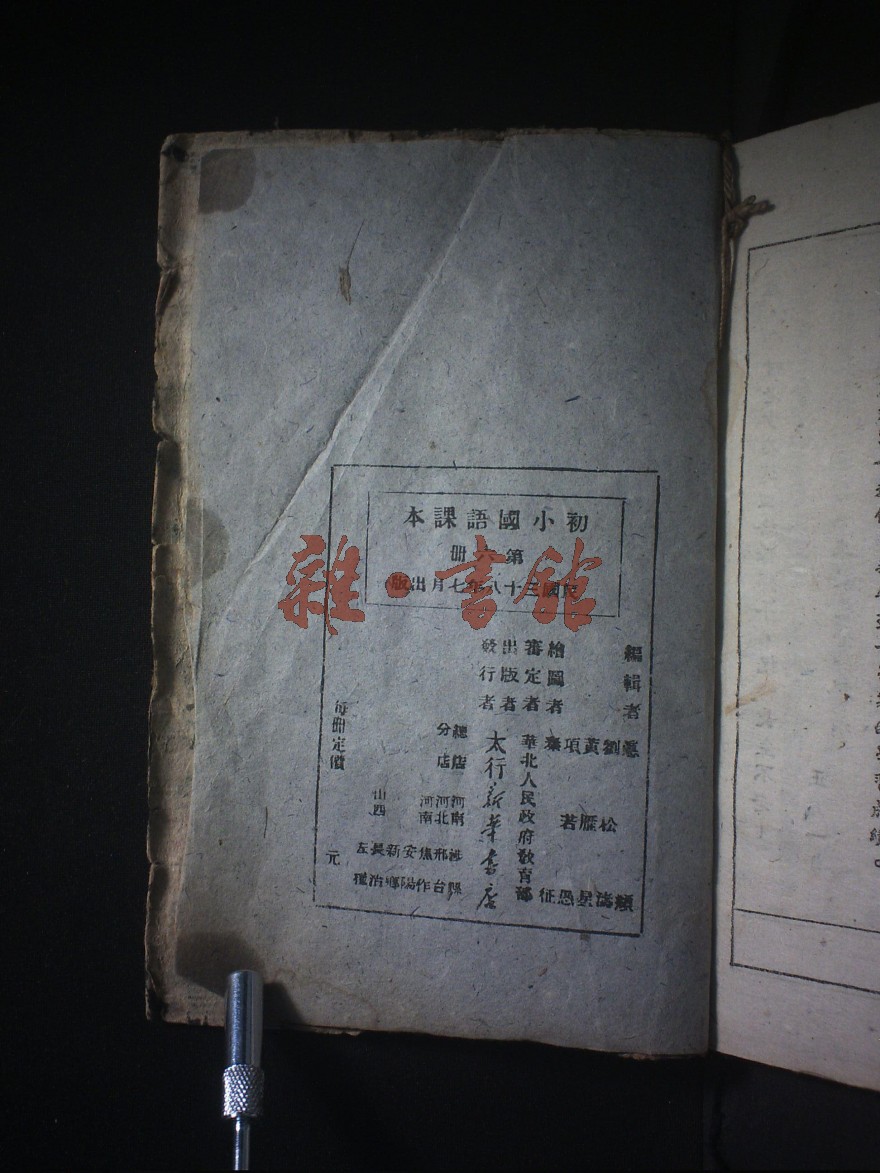 初小國語課本
第六冊
民國三十八年七月出版
編輯者 惠
劉松濤
黃雁星
項若愚
繪圖者 秦征
審定者 華北人民政府教育部
出版者
發行者 太行新華書店
總店 河南涉縣
分店 河北邢台
河南焦作
安陽
新鄉
山西長治
左權
每冊定價 元
雜·書館